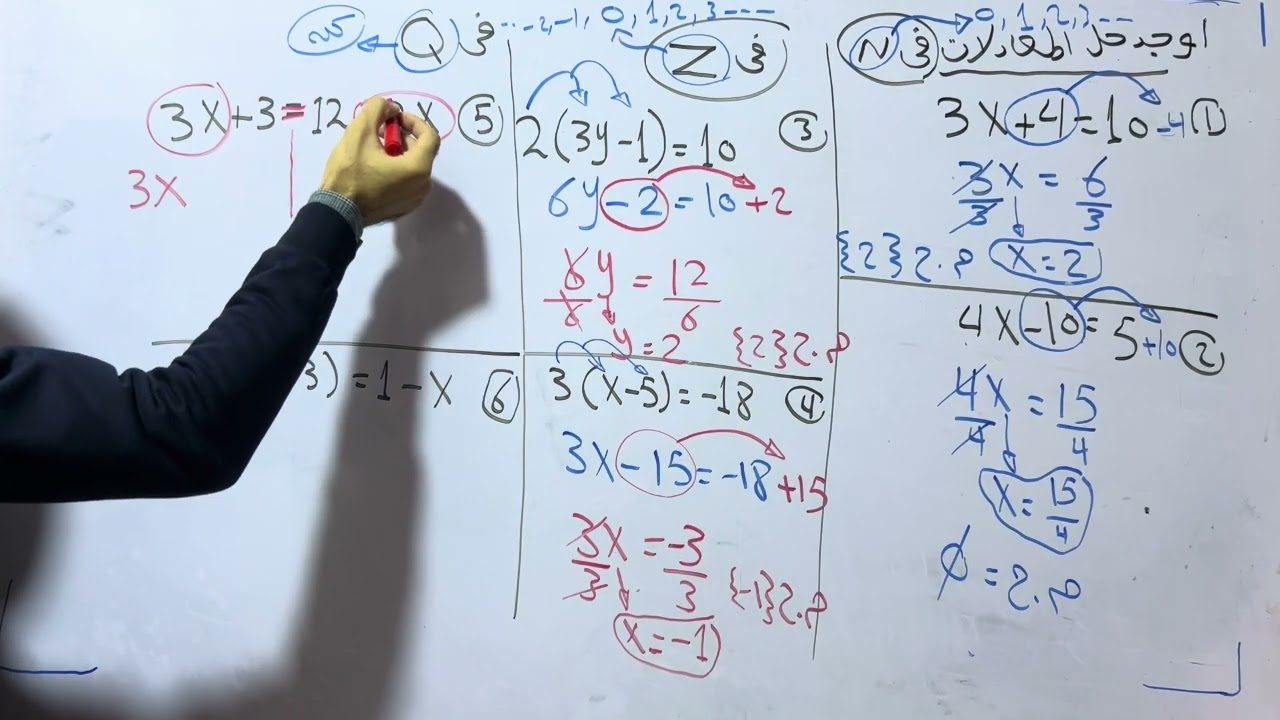 اوجد حل المعادلات في N → 0, 1, 2, 3, ...
① 3X + 4 = 10 - 4
3X/3 = 6/3
X = 2
م.ح {2}
② 4X - 10 = 5 + 10
4X/4 = 15/4
X = 15/4
م.ح = ∅
في Z
... -2, -1, 0, 1, 2, 3 ...
③ 2(3y - 1) = 10
6y - 2 = 10 + 2
6y/6 = 12/6
y = 2
م.ح {2}
④ 3(X - 5) = -18
3X - 15 = -18 + 15
3X/3 = -3/3
X = -1
م.ح {-1}
في Q
⑤ 3X + 3 = 12
X
3X
⑥ 3) = 1 - X